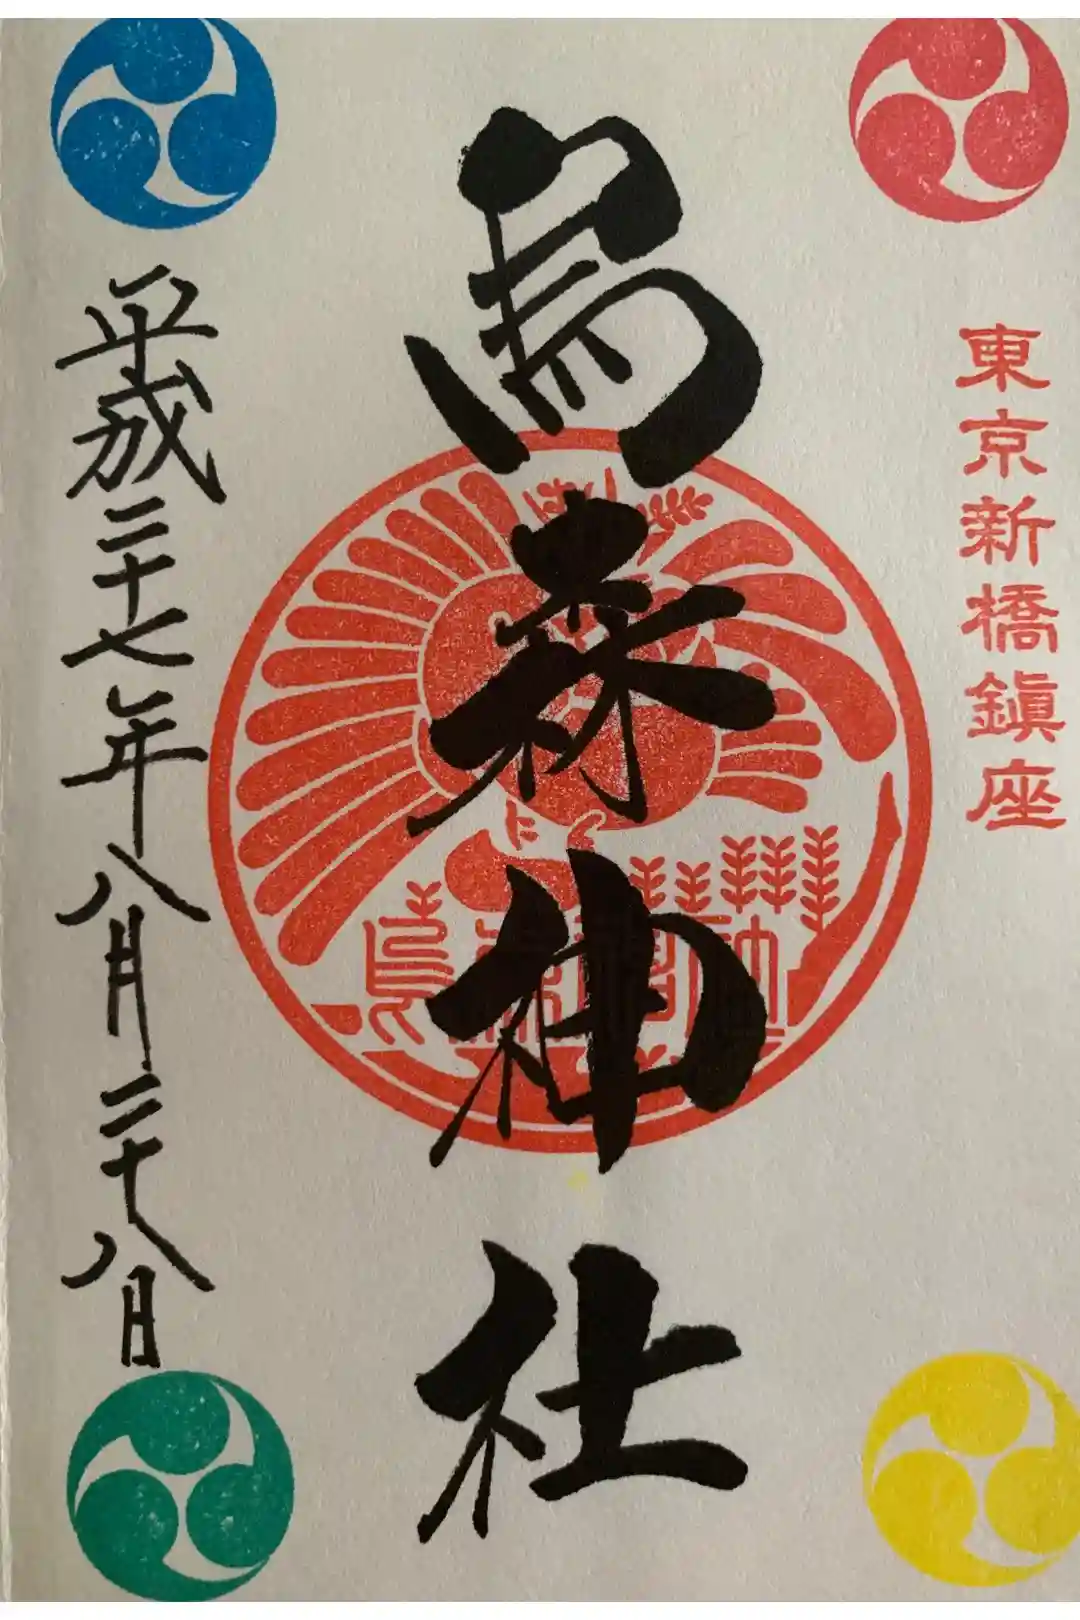 東京新橋鎮座
烏森神社
平成二十七年八月二十八日